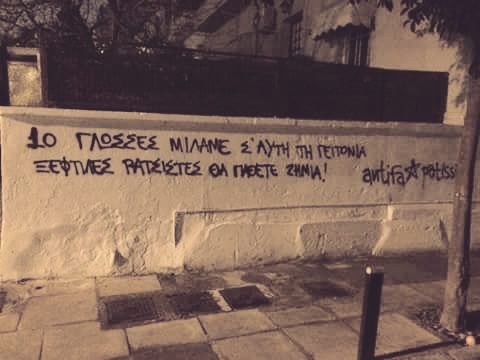 10 ΓΛΩΣΣΕΣ ΜΙΛΑΜΕ Σ'ΑΥΤΗ ΤΗ ΓΕΙΤΟΝΙΑ
ΞΕΦΤΙΛΕΣ ΡΑΤΣΙΣΤΕΣ ΘΑ ΠΑΘΕΤΕ ΖΗΜΙΑ! antifa★patissi